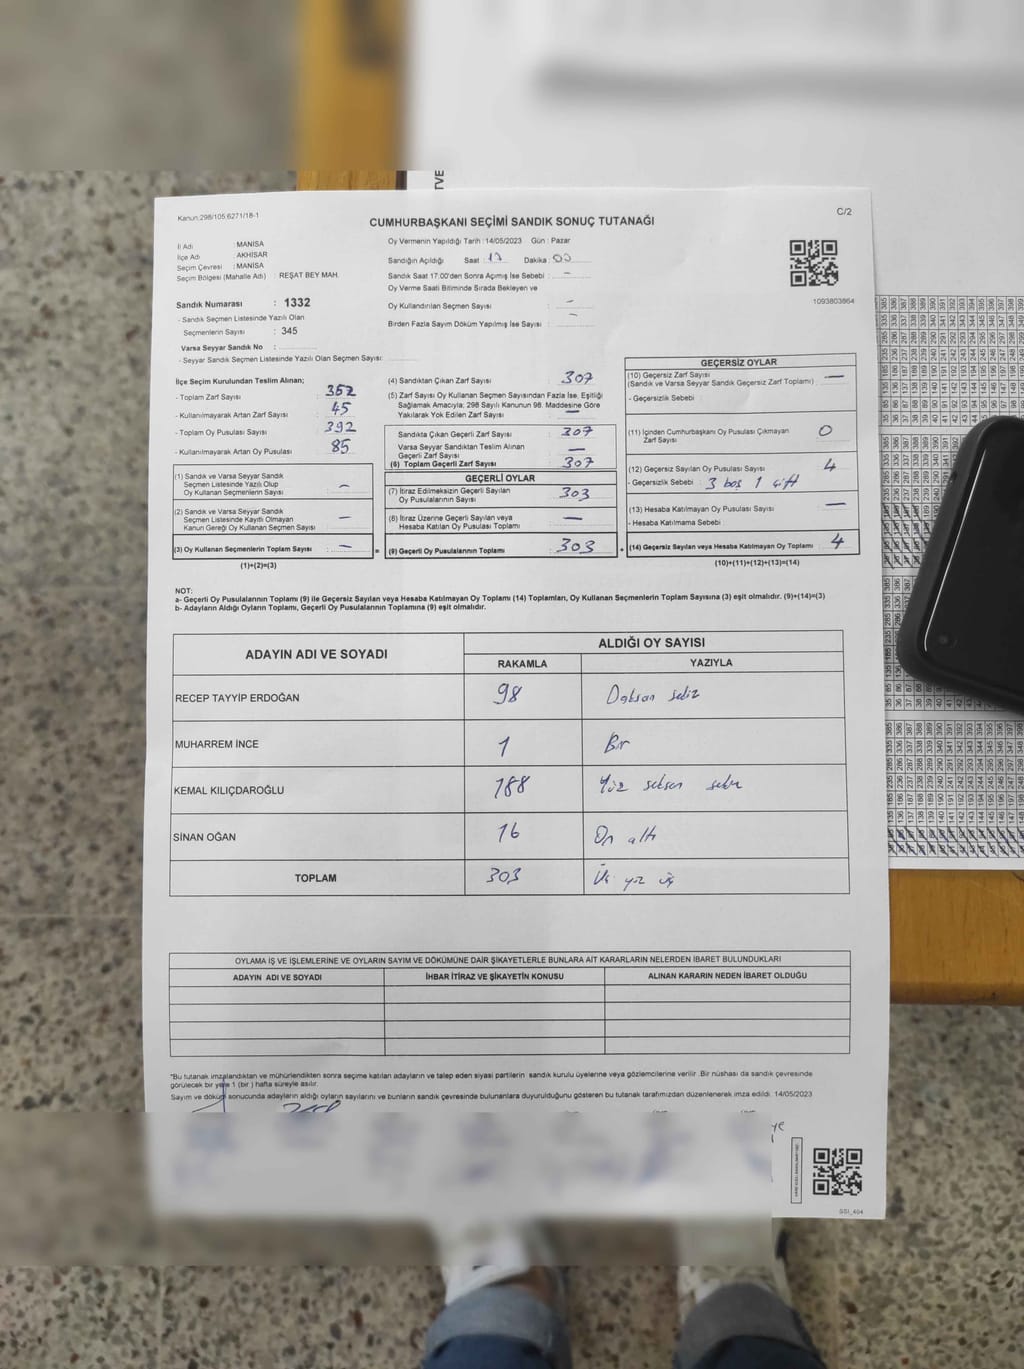 Kanun:298/105,6271/18-1
C/2
CUMHURBAŞKANI SEÇİMİ SANDIK SONUÇ TUTANAĞI
İl Adı : MANİSA
İlçe Adı : AKHİSAR
Seçim Çevresi : MANİSA
Seçim Bölgesi (Mahalle Adı) : REŞAT BEY MAH.
Oy Vermenin Yapıldığı Tarih :14/05/2023 Gün : Pazar
Sandığın Açıldığı Saat : 17 Dakika : 00
Sandık Saat 17.00'den Sonra Açımış İse Sebebi : -
Oy Verme Saati Bitiminde Sırada Bekleyen ve
Oy Kullandırılan Seçmen Sayısı : -
Birden Fazla Sayım Döküm Yapılmış İse Sayısı : -
1093803864
Sandık Numarası : 1332
- Sandık Seçmen Listesinde Yazılı Olan
Seçmenlerin Sayısı : 345
Varsa Seyyar Sandık No :
- Seyyar Sandık Seçmen Listesinde Yazılı Olan Seçmen Sayısı:
İlçe Seçim Kurulundan Teslim Alınan;
- Toplam Zarf Sayısı : 352
- Kullanılmayarak Artan Zarf Sayısı : 45
- Toplam Oy Pusulası Sayısı : 392
- Kullanılmayarak Artan Oy Pusulası : 85
(1) Sandık ve Varsa Seyyar Sandık
Seçmen Listesinde Yazılı Olup
Oy Kullanan Seçmenlerin Sayısı : -
(2) Sandık ve Varsa Seyyar Sandık
Seçmen Listesinde Kayıtlı Olmayan
Kanun Gereği Oy Kullanan Seçmen Sayısı : -
(3) Oy Kullanan Seçmenlerin Toplam Sayısı : - =
(1)+(2)=(3)
(4) Sandıktan Çıkan Zarf Sayısı : 307
(5) Zarf Sayısı Oy Kullanan Seçmen Sayısından Fazla İse, Eşitliği
Sağlamak Amacıyla; 298 Sayılı Kanunun 98. Maddesine Göre
Yakılarak Yok Edilen Zarf Sayısı : -
Sandıkta Çıkan Geçerli Zarf Sayısı : 307
Varsa Seyyar Sandıktan Teslim Alınan
Geçerli Zarf Sayısı : -
(6) Toplam Geçerli Zarf Sayısı : 307
GEÇERLİ OYLAR
(7) İtiraz Edilmeksizin Geçerli Sayılan
Oy Pusulalarının Sayısı : 303
(8) İtiraz Üzerine Geçerli Sayılan veya
Hesaba Katılan Oy Pusulası Toplamı : -
(9) Geçerli Oy Pusulalarının Toplamı : 303 +
GEÇERSİZ OYLAR
(10) Geçersiz Zarf Sayısı : -
(Sandık ve Varsa Seyyar Sandık Geçersiz Zarf Toplamı)
- Geçersizlik Sebebi :
(11) İçinden Cumhurbaşkanı Oy Pusulası Çıkmayan
Zarf Sayısı : 0
(12) Geçersiz Sayılan Oy Pusulası Sayısı : 4
- Geçersizlik Sebebi : 3 boş 1 çift
(13) Hesaba Katılmayan Oy Pusulası Sayısı : -
- Hesaba Katılmama Sebebi :
(14) Geçersiz Sayılan veya Hesaba Katılmayan Oy Toplamı : 4
(10)+(11)+(12)+(13)=(14)
NOT:
a- Geçerli Oy Pusulalarının Toplamı (9) ile Geçersiz Sayılan veya Hesaba Katılmayan Oy Toplamı (14) Toplamları, Oy Kullanan Seçmenlerin Toplam Sayısına (3) eşit olmalıdır. (9)+(14)=(3)
b- Adayların Aldığı Oyların Toplamı, Geçerli Oy Pusulalarının Toplamına (9) eşit olmalıdır.
ADAYIN ADI VE SOYADI ALDIĞI OY SAYISI
RAKAMLA YAZIYLA
RECEP TAYYİP ERDOĞAN 98 Doksan sekiz
MUHARREM İNCE 1 Bir
KEMAL KILIÇDAROĞLU 188 Yüz seksen sekiz
SİNAN OĞAN 16 On altı
TOPLAM 303 Üç yüz üç
OYLAMA İŞ VE İŞLEMLERİNE VE OYLARIN SAYIM VE DÖKÜMÜNE DAİR ŞİKAYETLERLE BUNLARA AİT KARARLARIN NELERDEN İBARET BULUNDUKLARI
ADAYIN ADI VE SOYADI İHBAR İTİRAZ VE ŞİKAYETİN KONUSU ALINAN KARARIN NEDEN İBARET OLDUĞU
*Bu tutanak imzalandıktan ve mühürlendikten sonra seçime katılan adayların ve talep eden siyasi partilerin sandık kurulu üyelerine veya gözlemcilerine verilir .Bir nüshası da sandık çevresinde
görülecek bir yere 1 (bir ) hafta süreyle asılır.
Sayım ve döküm sonucunda adayların aldığı oyların sayılarını ve bunların sandık çevresinde bulunanlara duyurulduğunu gösteren bu tutanak tarafımızdan düzenlenerek imza edildi. 14/05/2023
SSI_404